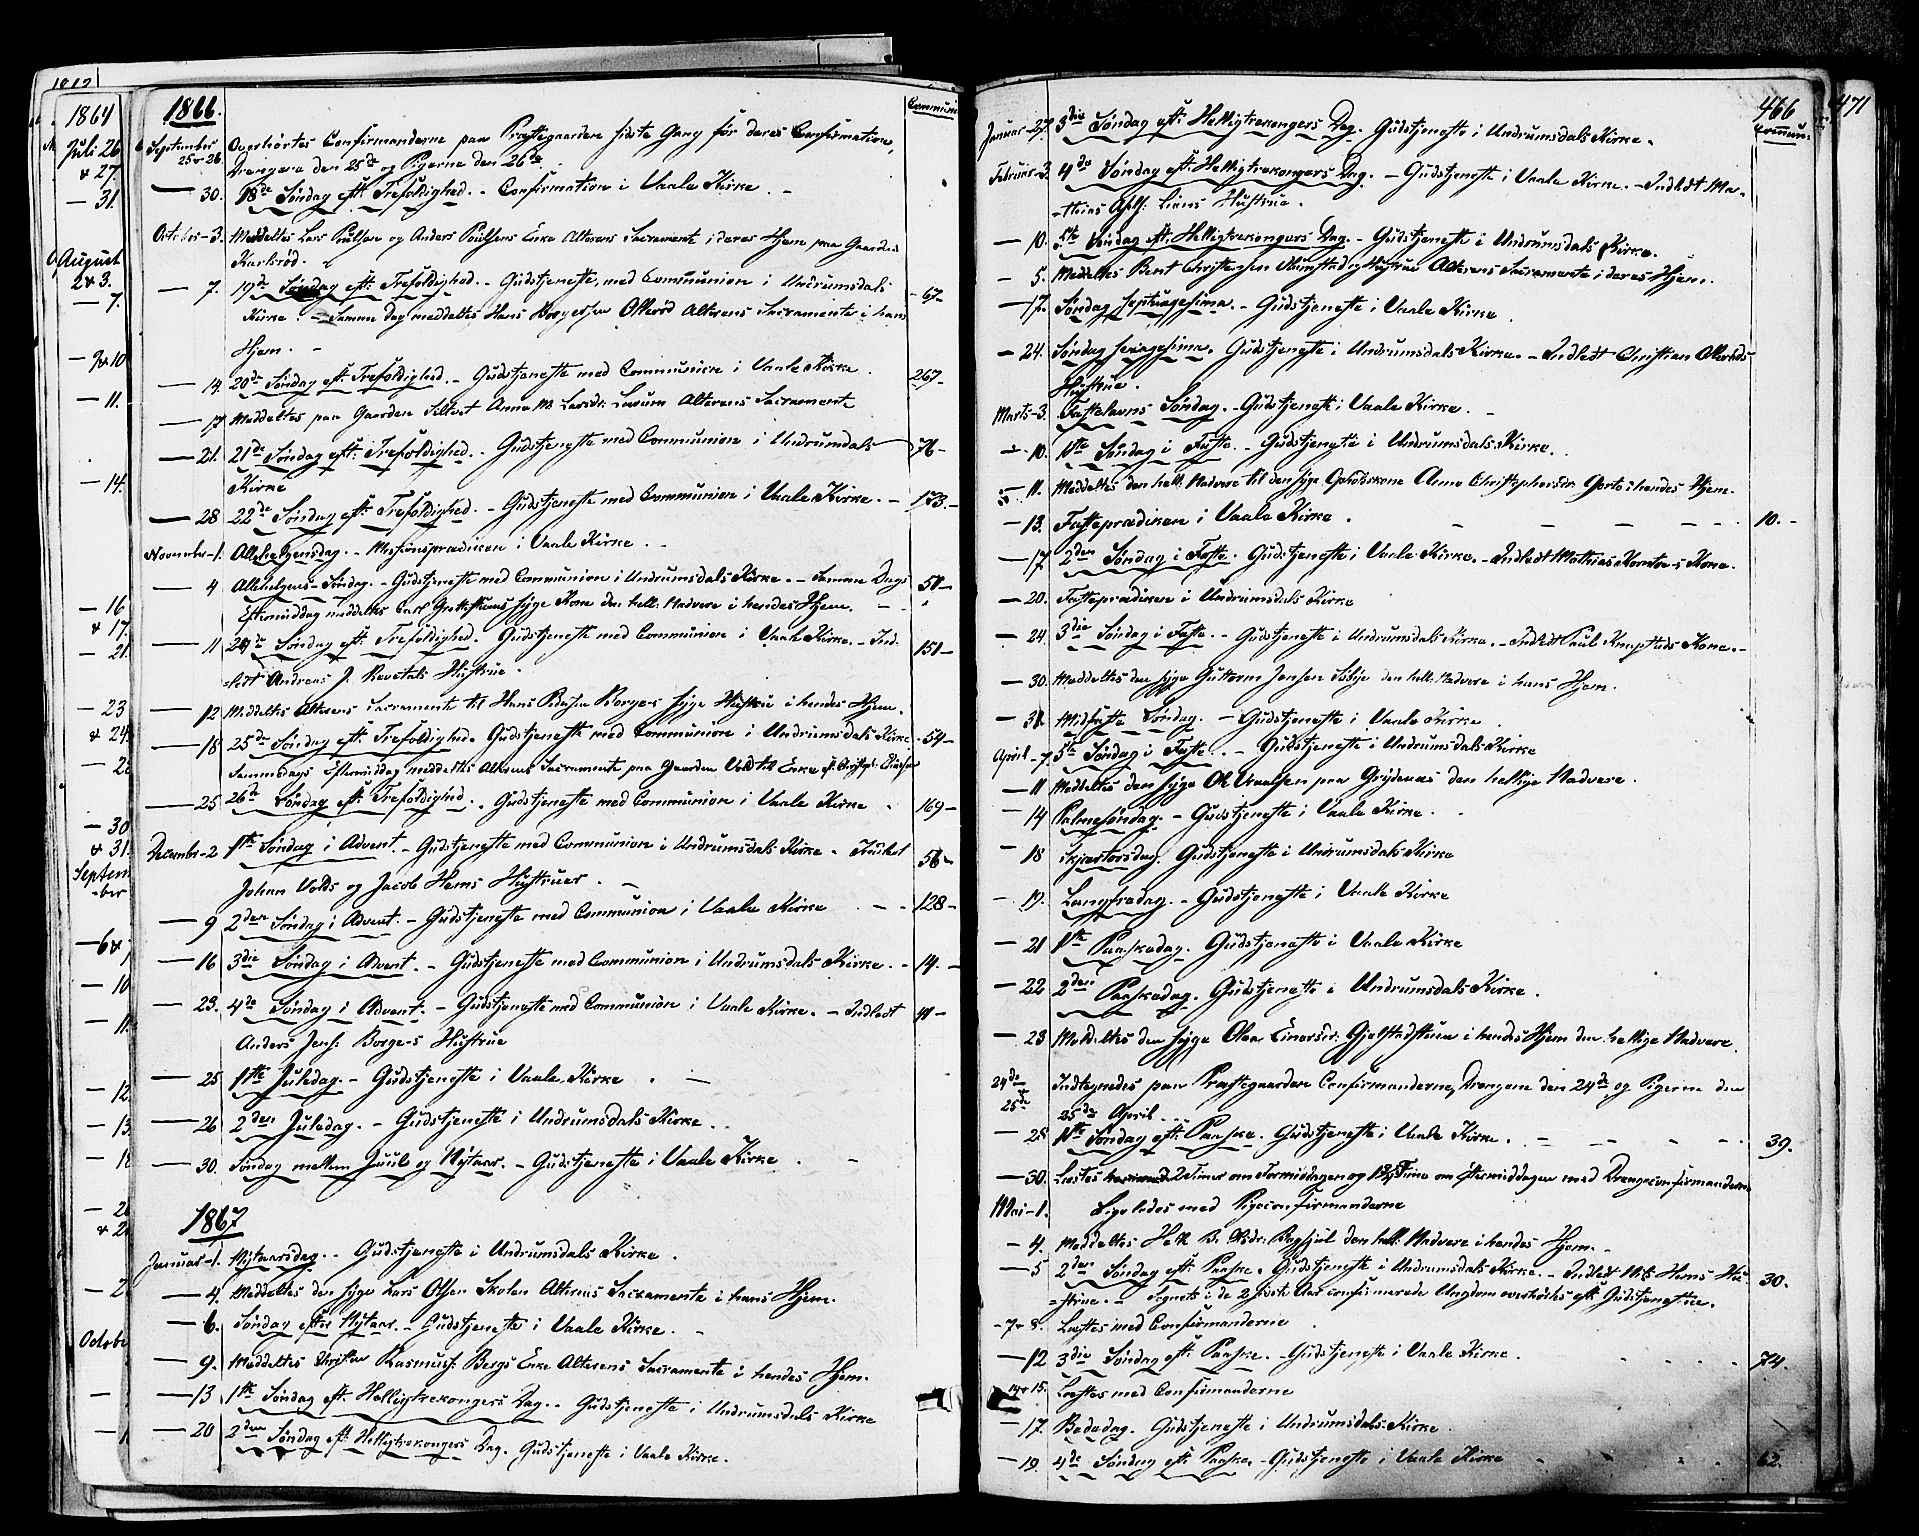 1866.
Communi
September 25 & 26. Overhørtes Confirmanderne paa Præstegaarden sidste Gang før deres Confirmation,
Drengene den 25de og Pigerne den 26de
— 30. 18de Søndag eft. Trefoldighed. - Confirmation i Vaale Kirke. -
October - 3. Meddeltes Lars Poulsen og Anders Poulsens Enke Alterens Sacramente i deres Hjem paa Gaarden
Karlsrød.
— 7. 19de Søndag eft. Trefoldighed. - Gudstjeneste, med Communion i Undrumsdals - 67 -
Kirke. - Samme Dag meddeltes Hans Borgersen Otterød Alterens Sacramente i hans
Hjem. -
— 14. 20de Søndag eft. Trefoldighed. - Gudstjeneste med Communion i Vaale Kirke. 267 -
— 17 Meddeltes paa Gaarden Anna M. Larsdr. Alterens Sacramente
— 21. 21de Søndag eft. Trefoldighed. - Gudstjeneste med Communion i Undrumsdals 76 -
Kirke
— 28 22de Søndag eft. Trefoldighed. - Gudstjeneste med Communion i Vaale Kirke. - 173. -
November - 1. Allehelgensdag. - Missionsprædiken i Vaale Kirke. -
— 4 Allehelgens-Søndag. - Gudstjeneste med Communion i Undrumsdals Kirke. - Samme Dags 50 -
Eftermiddag meddeltes Carl syge Kone den hell. Nadvere i hendes Hjem. -
— 11 24de Søndag eft. Trefoldighed. Gudstjeneste med Communion i Vaale Kirke. - Ind- 151 -
-ledt Andreas J. Revetals Hustrue.
— 12 Meddeltes Alterens Sacramente til Hans Borge-s syge Hustru i hendes Hjem.
— 18 25de Søndag eft. Trefoldighed. Gudstjeneste med Communion i Undrumsdals Kirke - 54 -
Sammedags Eftermiddag meddeltes Alterens Sacramente paa Gaarden Vold til Enke
— 25 26de Søndag eft. Trefoldighed. - Gudstjeneste med Communion i Vaale Kirke. 169 -
December - 2 1ste Søndag i Advent. - Gudstjeneste med Communion i Undrumsdals Kirke - Indledt 56 -
Johan Volds og Jacob Hems Hustruer. -
— 9 2den Søndag i Advent. - Gudstjeneste med Communion i Vaale Kirke - - 128 -
— 16 3die Søndag i Advent. - Gudstjeneste med Communion i Undrumsdals Kirke. - 14. -
— 23. 4de Søndag i Advent. - Gudstjeneste med Communion i Vaale Kirke. - Indledt 41 -
Anders Jens. Borge-s Hustrue
— 25 1ste Juledag. - Gudstjeneste i Vaale Kirke. -
— 26 2den Juledag. - Gudstjeneste i Undrumsdals Kirke.
— 30. Søndag mellem Juul og Nytaar. - Gudstjeneste i Vaale Kirke. -
1867
Januar - 1. Nytaarsdag. - Gudstjeneste i Undrumsdals Kirke.
— 4. Meddeltes den syge Lars Olsen Skolen Alterens Sacramente i hans Hjem.
— 6. Søndag efter Nytaar. - Gudstjeneste i Vaale Kirke. -
— 9. Meddeltes Rasmuss. Bergs Enke Alterens Sacramente i hendes Hjem.
— 13 1ste Søndag eft. Helligtrekongers Dag. - Gudstjeneste i Undrumsdals Kirke
— 20 2den Søndag eft. Helligtrekongers Dag. Gudstjeneste i Vaale Kirke.
466
Commun:
Januar - 27. 3die Søndag eft. Helligtrekongers Dag. Gudstjeneste i Undrumsdals Kirke.
Februar - 3. 4de Søndag eft. Helligtrekongers Dag. - Gudstjeneste i Vaale Kirke. - Indledt Ma-
-thias Liens Hustrue.
— 10. 5te Søndag eft. Helligtrekongers Dag. - Gudstjeneste i Undrumsdals Kirke.
— 5. Meddeltes Bent Christensen og Hustrue Alterens Sacramente i deres Hjem.
— 17. Søndag septuagesima. - Gudstjeneste i Vaale Kirke.
— 24. Søndag sexagesima. Gudstjeneste i Undrumsdals Kirke. - Indledt Christian Otterøds
Hustrue.
Marts - 3. Fastelavns Søndag. - Gudstjeneste i Vaale Kirke. -
— 10. 1ste Søndag i Faste. - Gudstjeneste i Undrumsdals Kirke.
— 11. Meddeltes den hell. Nadvere til den syge Anne Christophersdr. i hendes Hjem.
— 13. Fasteprædiken i Vaale Kirke. - - - - 10. -
— 17 2den Søndag i Faste. Gudstjeneste i Vaale Kirke. - Indledt Mathias Kone.
— 20. Fasteprædiken i Undrumsdals Kirke
— 24. 3die Søndag i Faste. - Gudstjeneste i Undrumsdals Kirke. - Indledt Paul Kone. -
— 30. Meddeltes den syge Guttorm Jensen den hell. Nadvere i hans Hjem.
— 31. Midfaste Søndag. - Gudstjeneste i Vaale Kirke.
April - 7. 5te Søndag i Faste. - Gudstjeneste i Undrumsdals Kirke
— 11 Meddeltes den syge Ol. paa den hellige Nadvere.
— 14 Palmesøndag. - Gudstjeneste i Vaale Kirke.
— 18 Skjærtorsdag. Gudstjeneste i Undrumsdals Kirke
— 19. Langfredag. - Gudstjeneste i Vaale Kirke
— 21 1ste Paaskedag. Gudstjeneste i Vaale Kirke
— 22 2den Paaskedag. Gudstjeneste i Undrumsdals Kirke.
— 23 Meddeltes den syge Olea Einarsdr. i hendes Hjem den hellige Nadvere.
24de & 25de Indtegnedes paa Præstegaarden Confirmanderne, Drengene den 24de og Pigerne den
25de April.
— 28 1ste Søndag eft. Paaske. Gudstjeneste i Vaale Kirke. - - - - 39.
— 30. Læstes 2 Timer om Formiddagen og Time om Eftermiddagen med Drengeconfirmanderne
Mai - 1. Ligeledes med Pigeconfirmanderne
— 4. Meddeltes den hell. Nadvere i hendes Hjem. -
— 5 2den Søndag eft. Paaske. Gudstjeneste i Undrumsdals Kirke. - Indledt Hems Hu- 30.
-strue. - Sognets i de 2 sidste Aar confirmerede Ungdom overhørtes eft. Gudstjenesten.
- 7 & 8. Læstes med Confirmanderne
— 12 3die Søndag eft. Paaske. - Gudstjeneste i Vaale Kirke. 74.
14 & 15. Læstes med Confirmanderne
— 17. Bededag. Gudstjeneste i Undrumsdals Kirke
— 19. 4de Søndag eft. Paaske - Gudstjeneste i Vaale Kirke 62.
471
1864
Juli 26
& 27
— 31.
August
2 & 3.
— 7.
— 9 & 10
— 11.
— 14.
— 16
& 17.
— 21.
— 23
& 24.
— 30
& 31.
Septem
-ber
— 10
— 11.
— 12.
— 13.
Octobe